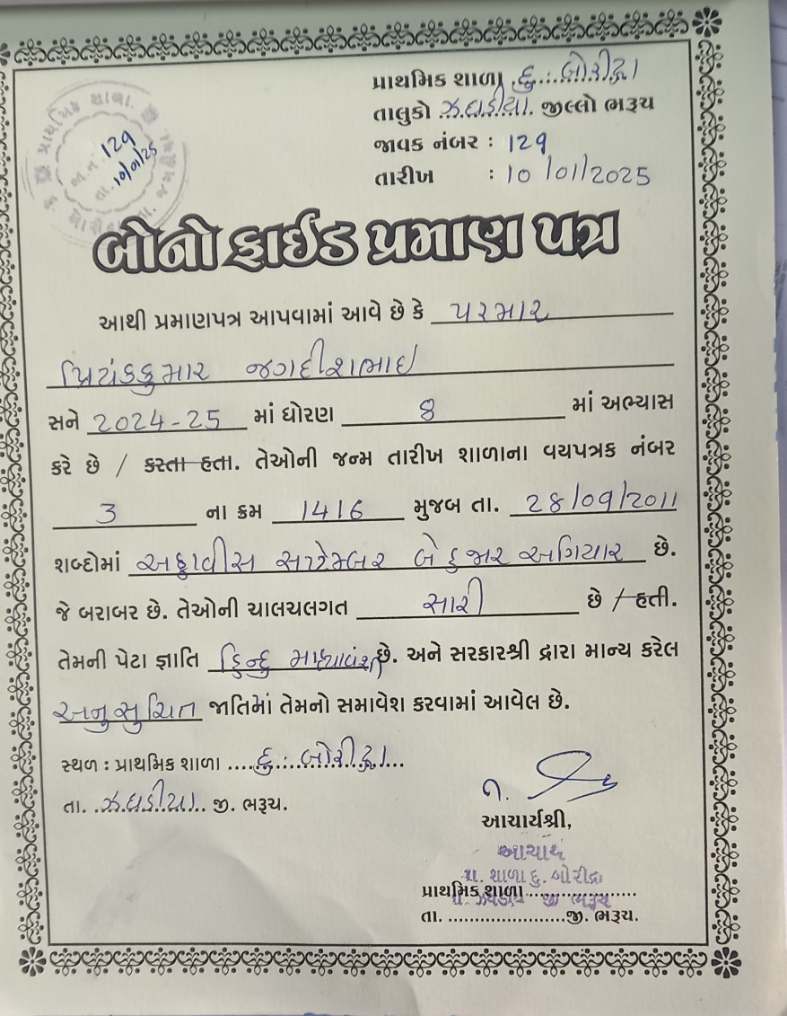 પ્રાથમિક શાળા દુ. બોરીદ્રા
તાલુકો ઝઘડીયા. જીલ્લો ભરૂચ
જાવક નંબર : 129
તારીખ : 10/01/2025
પ્રાથમિક શાળા
129
તા. 10/01/25
બોનોફાઈડ પ્રમાણ પત્ર
આથી પ્રમાણપત્ર આપવામાં આવે છે કે પરમાર
પ્રિયંકકુમાર જગદીશભાઇ
સને 2024-25 માં ધોરણ 8 માં અભ્યાસ
કરે છે / કરતા હતા. તેઓની જન્મ તારીખ શાળાના વયપત્રક નંબર
3 ના ક્રમ 1416 મુજબ તા. 28/09/2011
શબ્દોમાં અઠ્ઠાવીસ સપ્ટેમ્બર બે હજાર અગિયાર છે.
જે બરાબર છે. તેઓની ચાલચલગત સારી છે / હતી.
તેમની પેટા જ્ઞાતિ હિન્દુ માહ્યાવંશી છે. અને સરકારશ્રી દ્વારા માન્ય કરેલ
અનુસુચિત જાતિમાં તેમનો સમાવેશ કરવામાં આવેલ છે.
સ્થળ : પ્રાથમિક શાળા ....દુ...બોરીદ્રા...
તા. ..ઝઘડીયા.. જી. ભરૂચ.
આચાર્યશ્રી,
આચાર્ય
પ્રા. શાળા દુ. બોરીદ્રા
પ્રાથમિક શાળા ....................
તા. ....................જી. ભરૂચ.